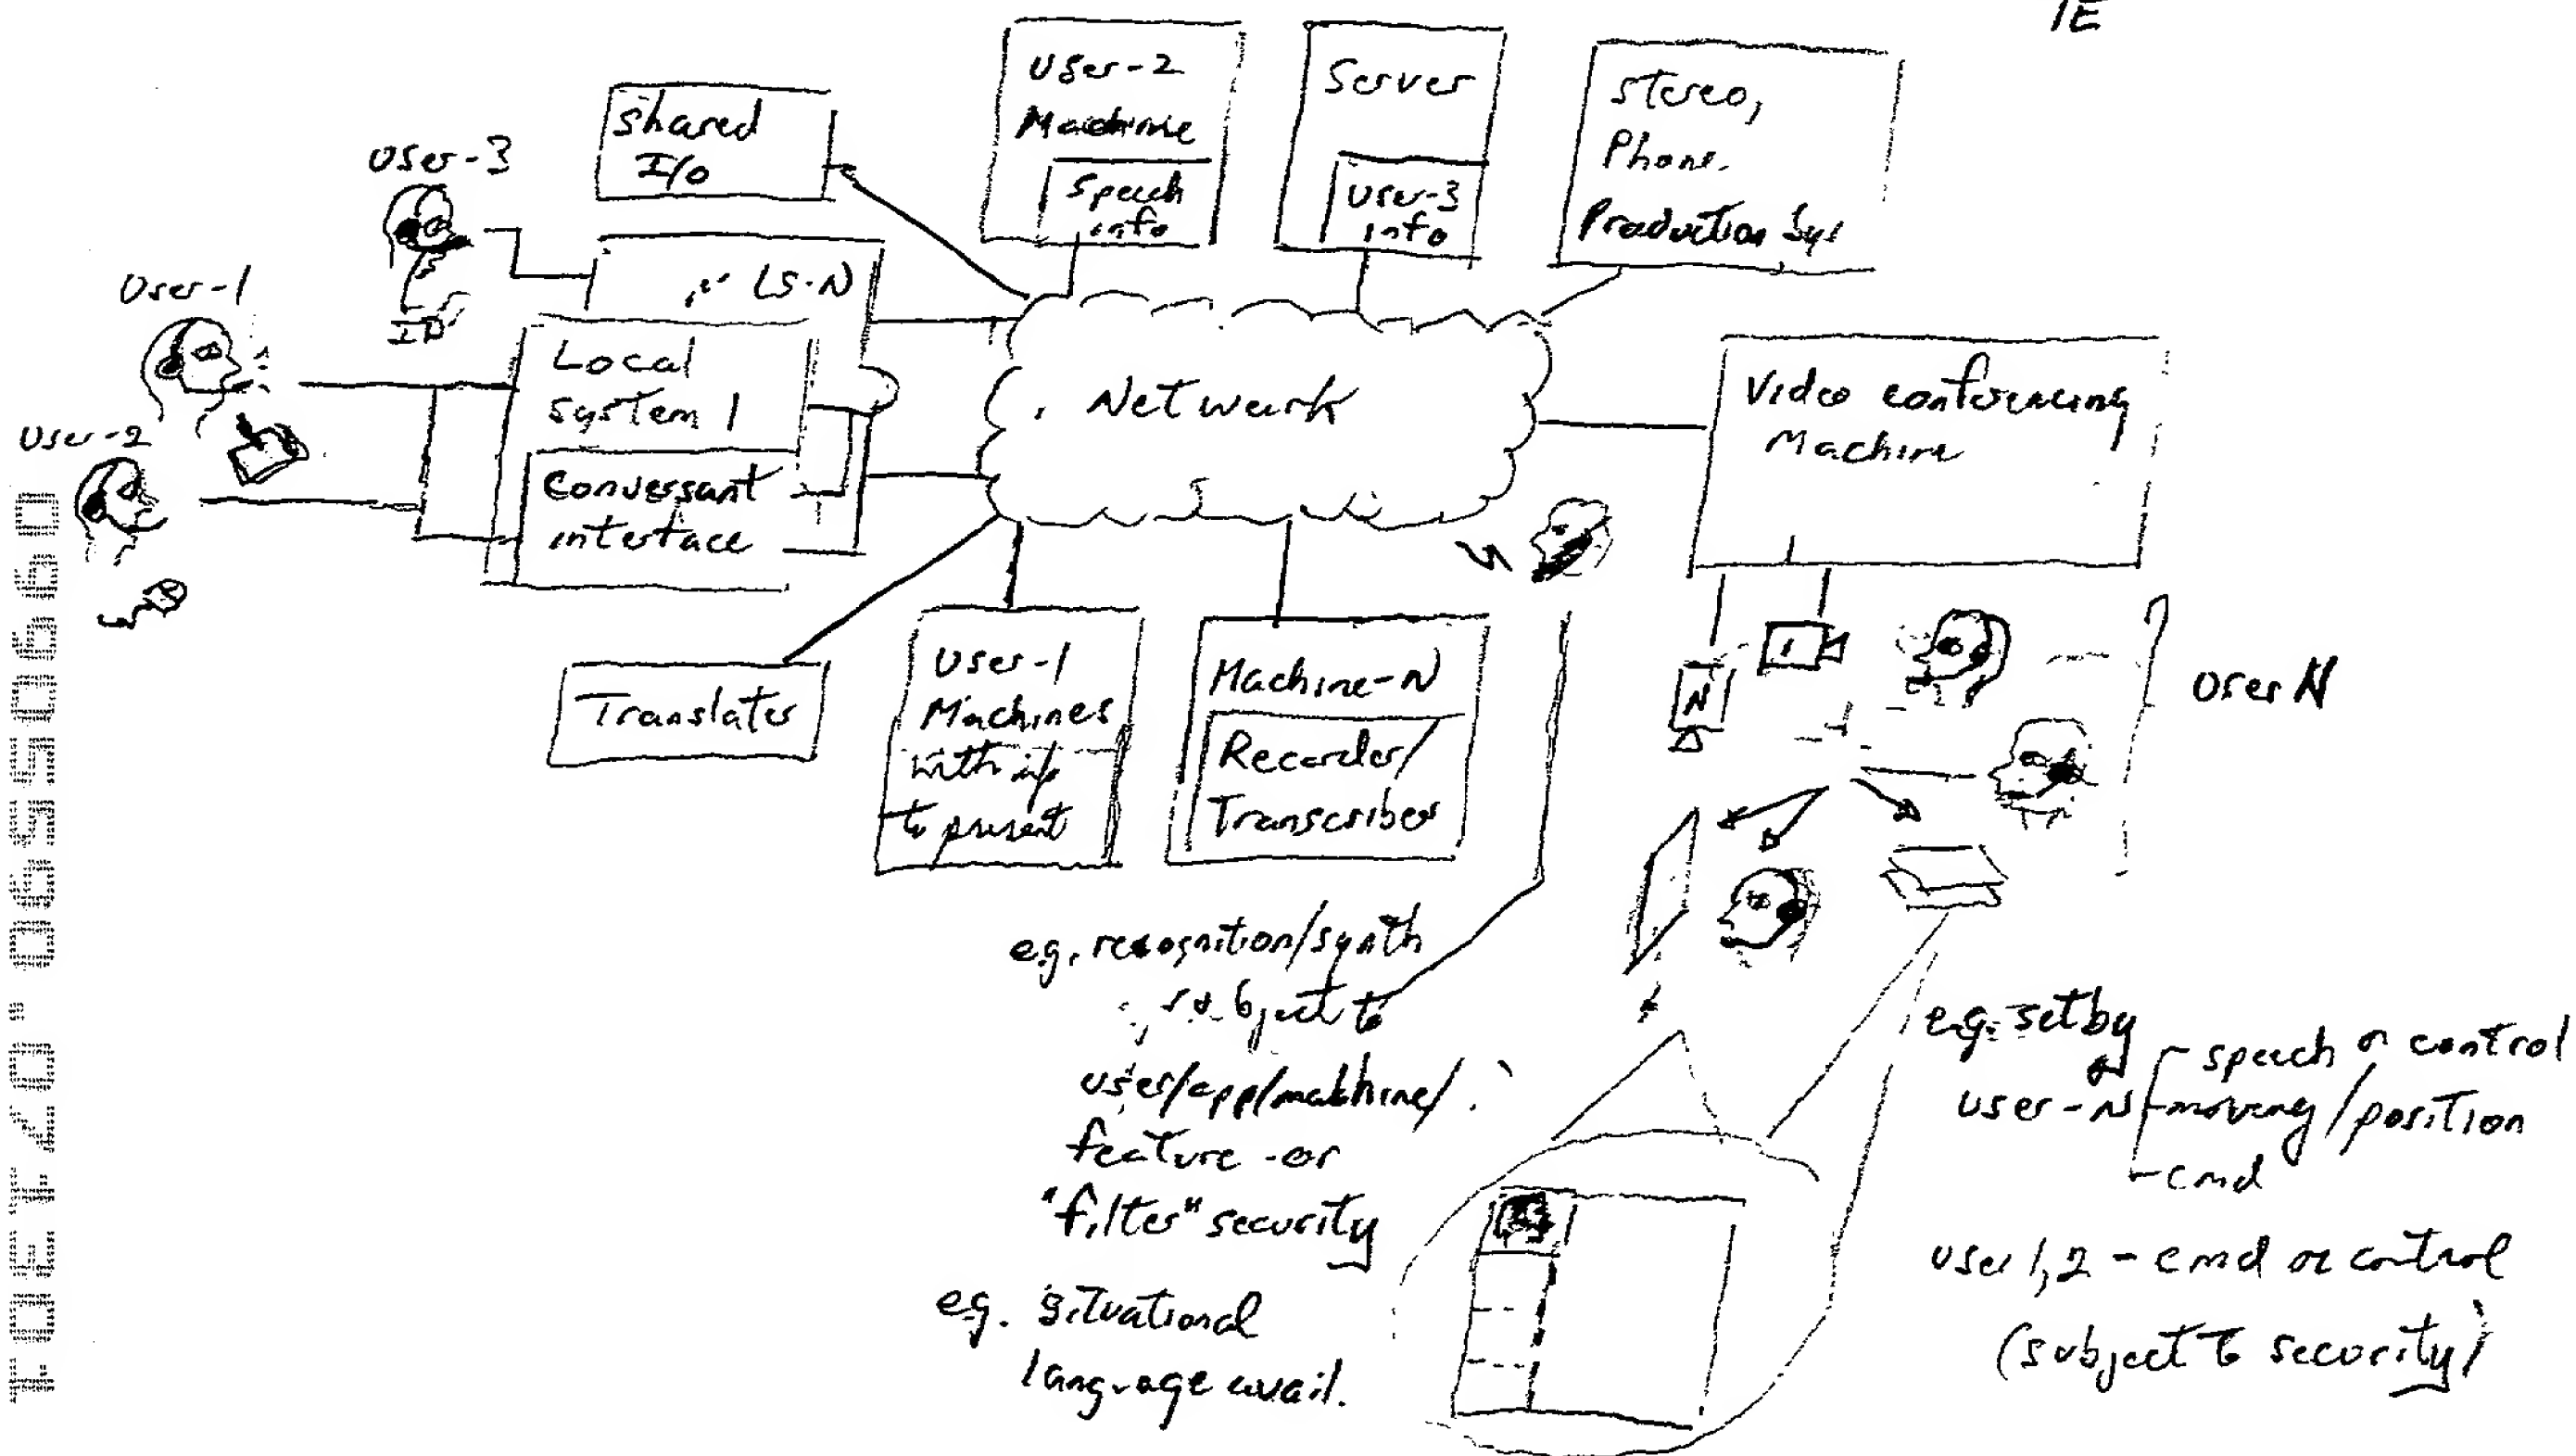 1E
User-2
Machine
Speech
info
Server
User-3
info
stereo,
Phone.
Production Sys
shared
I/O
User-3
ID
LS-N
User-1
User-2
Local
system 1
Conversant
interface
Network
Video conferencing
Machine
Translater
User-1
Machines
with
to present
Machine-N
Recorder/
Transcriber
N
User N
e.g. recognition/synth
subject to
user/app/machine/
feature -or
"filter" security
e.g. situational
language avail.
e.g. set by
user-N
speech or control
moving/position
cmd
user 1,2 - cmd or control
(subject to security)